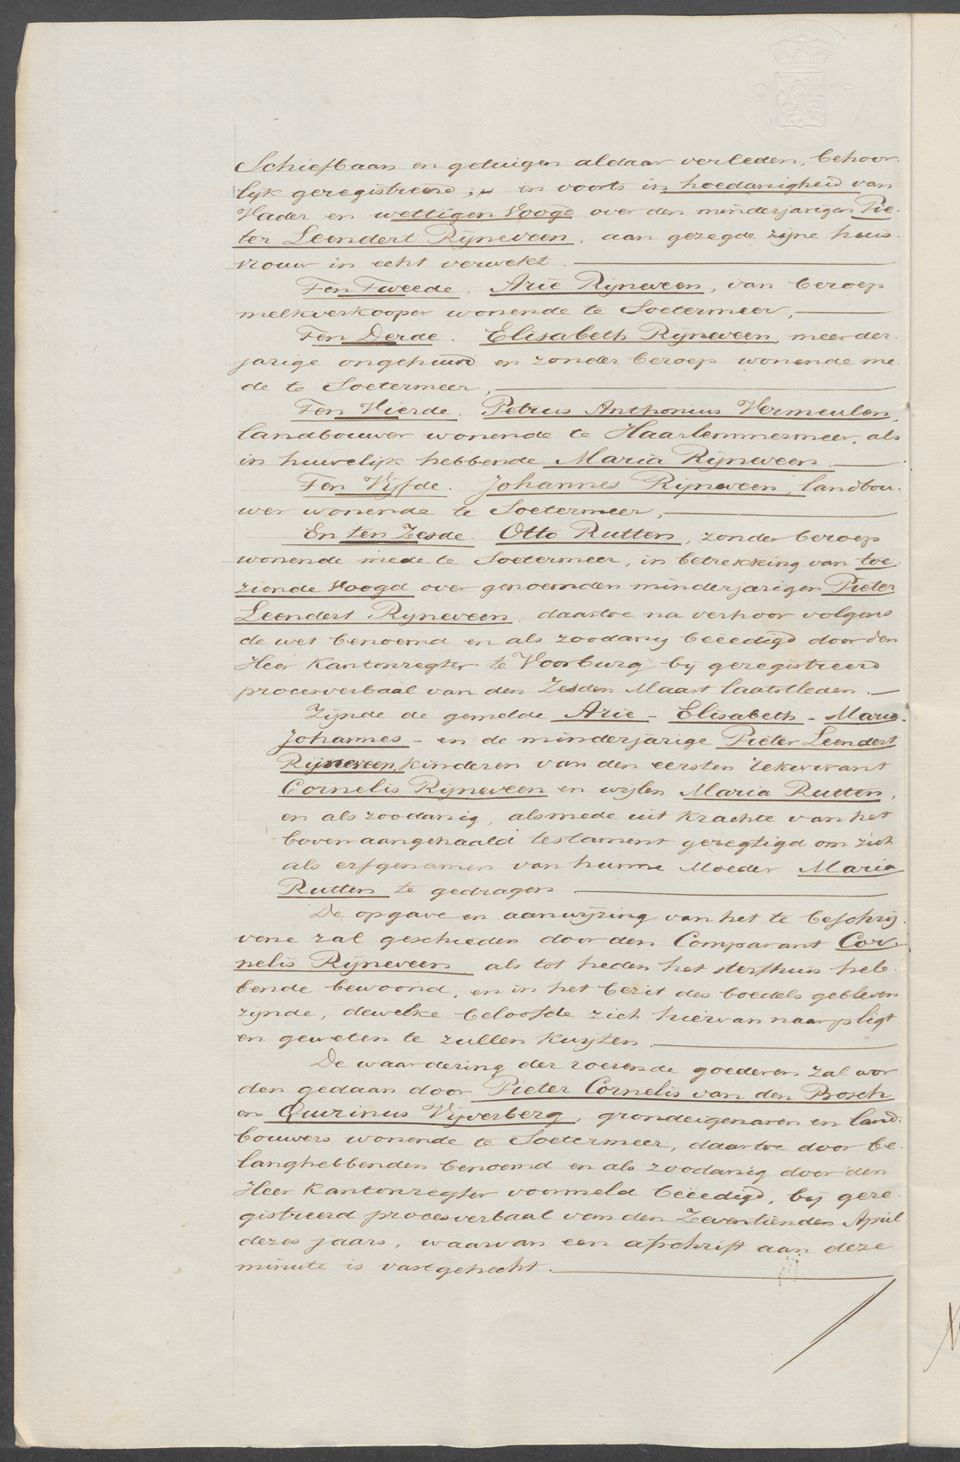 Schiefbaan en getuigen aldaar verleden, behoor
lijk geregistreerd ;, en voorts in hoedanigheid van
Vader en wettigen Voogd over den minderjarigen Pie-
ter Leendert Rijneveen, aan gezegde zijne huis-
vrouw in echt verwekt.
Ten Tweede. Arie Rijneveen, van beroep
melkverkooper wonende te Soetermeer,
Ten Derde. Elisabeth Rijneveen, meerder-
jarige ongehuwd en zonder beroep wonende me-
de te Soetermeer,
Ten Vierde. Petrus Anthonius Vermeulen,
landbouwer wonende te Haarlemmermeer, als
in huwelijk hebbende Maria Rijneveen.
Ten Vijfde. Johannes Rijneveen, landbou-
wer wonende te Soetermeer,
En ten Zesde. Otto Rutten, zonder beroep
wonende mede te Soetermeer, in betrekking van toe-
ziende Voogd over genoemden minderjarigen Pieter
Leendert Rijneveen, daartoe na verhoor volgens
de wet benoemd en als zoodanig beëedigd door den
Heer Kantonregter te Voorburg bij geregistreerd
procesverbaal van den Zesden Maart laatstleden.
Zijnde de gemelde Arie - Elisabeth - Maria-
Johannes - en de minderjarige Pieter Leendert
Rijneveen, kinderen van den eersten rekwirant
Cornelis Rijneveen en wijlen Maria Rutten,
en als zoodanig, alsmede uit krachte van het
boven aangehaald testament geregtigd om zich
als erfgenamen van hunne Moeder Maria
Rutten te gedragen
De opgave en aanwijzing van het te beschrij-
vene zal geschieden door den Comparant Cor-
nelis Rijneveen als tot heden het sterfhuis heb-
bende bewoond, en in het bezit des boedels gebleven
zijnde, dewelke beloofde zich hiervan naar pligt
en geweten te zullen kwijten.
De waardering der roerende goederen zal wor
den gedaan door Pieter Cornelis van den Bosch
en Quirinus Vijverberg, grondeigenaren en land-
bouwers wonende te Soetermeer, daartoe door be-
langhebbenden benoemd en als zoodanig door den
Heer Kantonregter voormeld beëedigd, bij gere-
gistreerd procesverbaal van den Zeventienden April
dezes jaars, waarvan een afschrift aan deze
minute is vastgehecht.